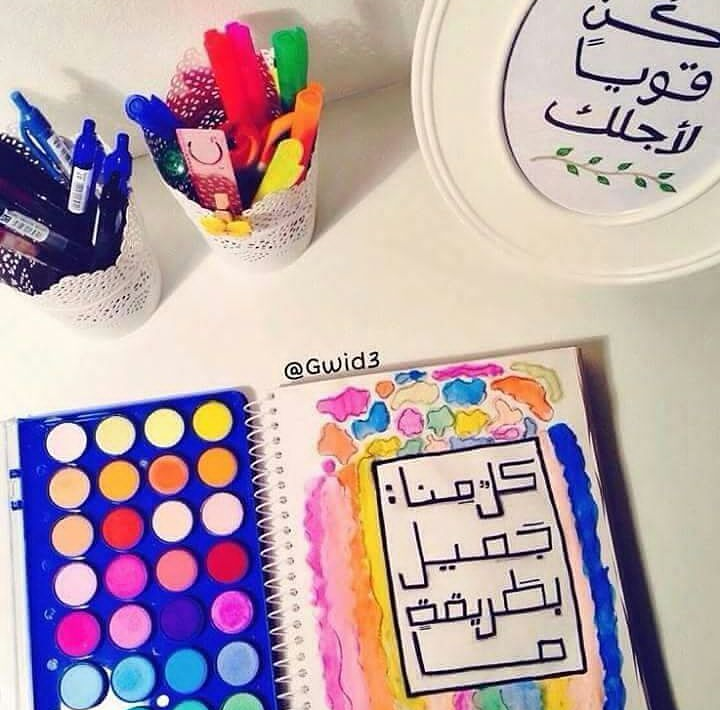 كن
قوياً
لأجلك
@Gwid3
كلٌ مِنا:
جَميل
بطَريقةٍ
مــا